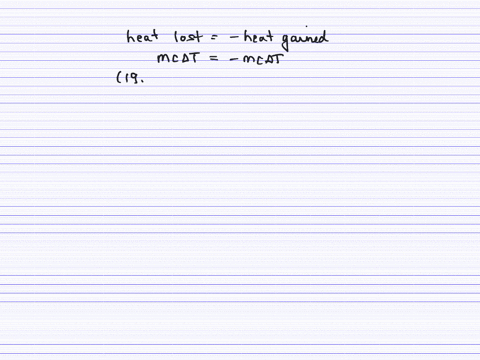 heat lost = - heat gained
mcΔT = - mcΔT
(19.